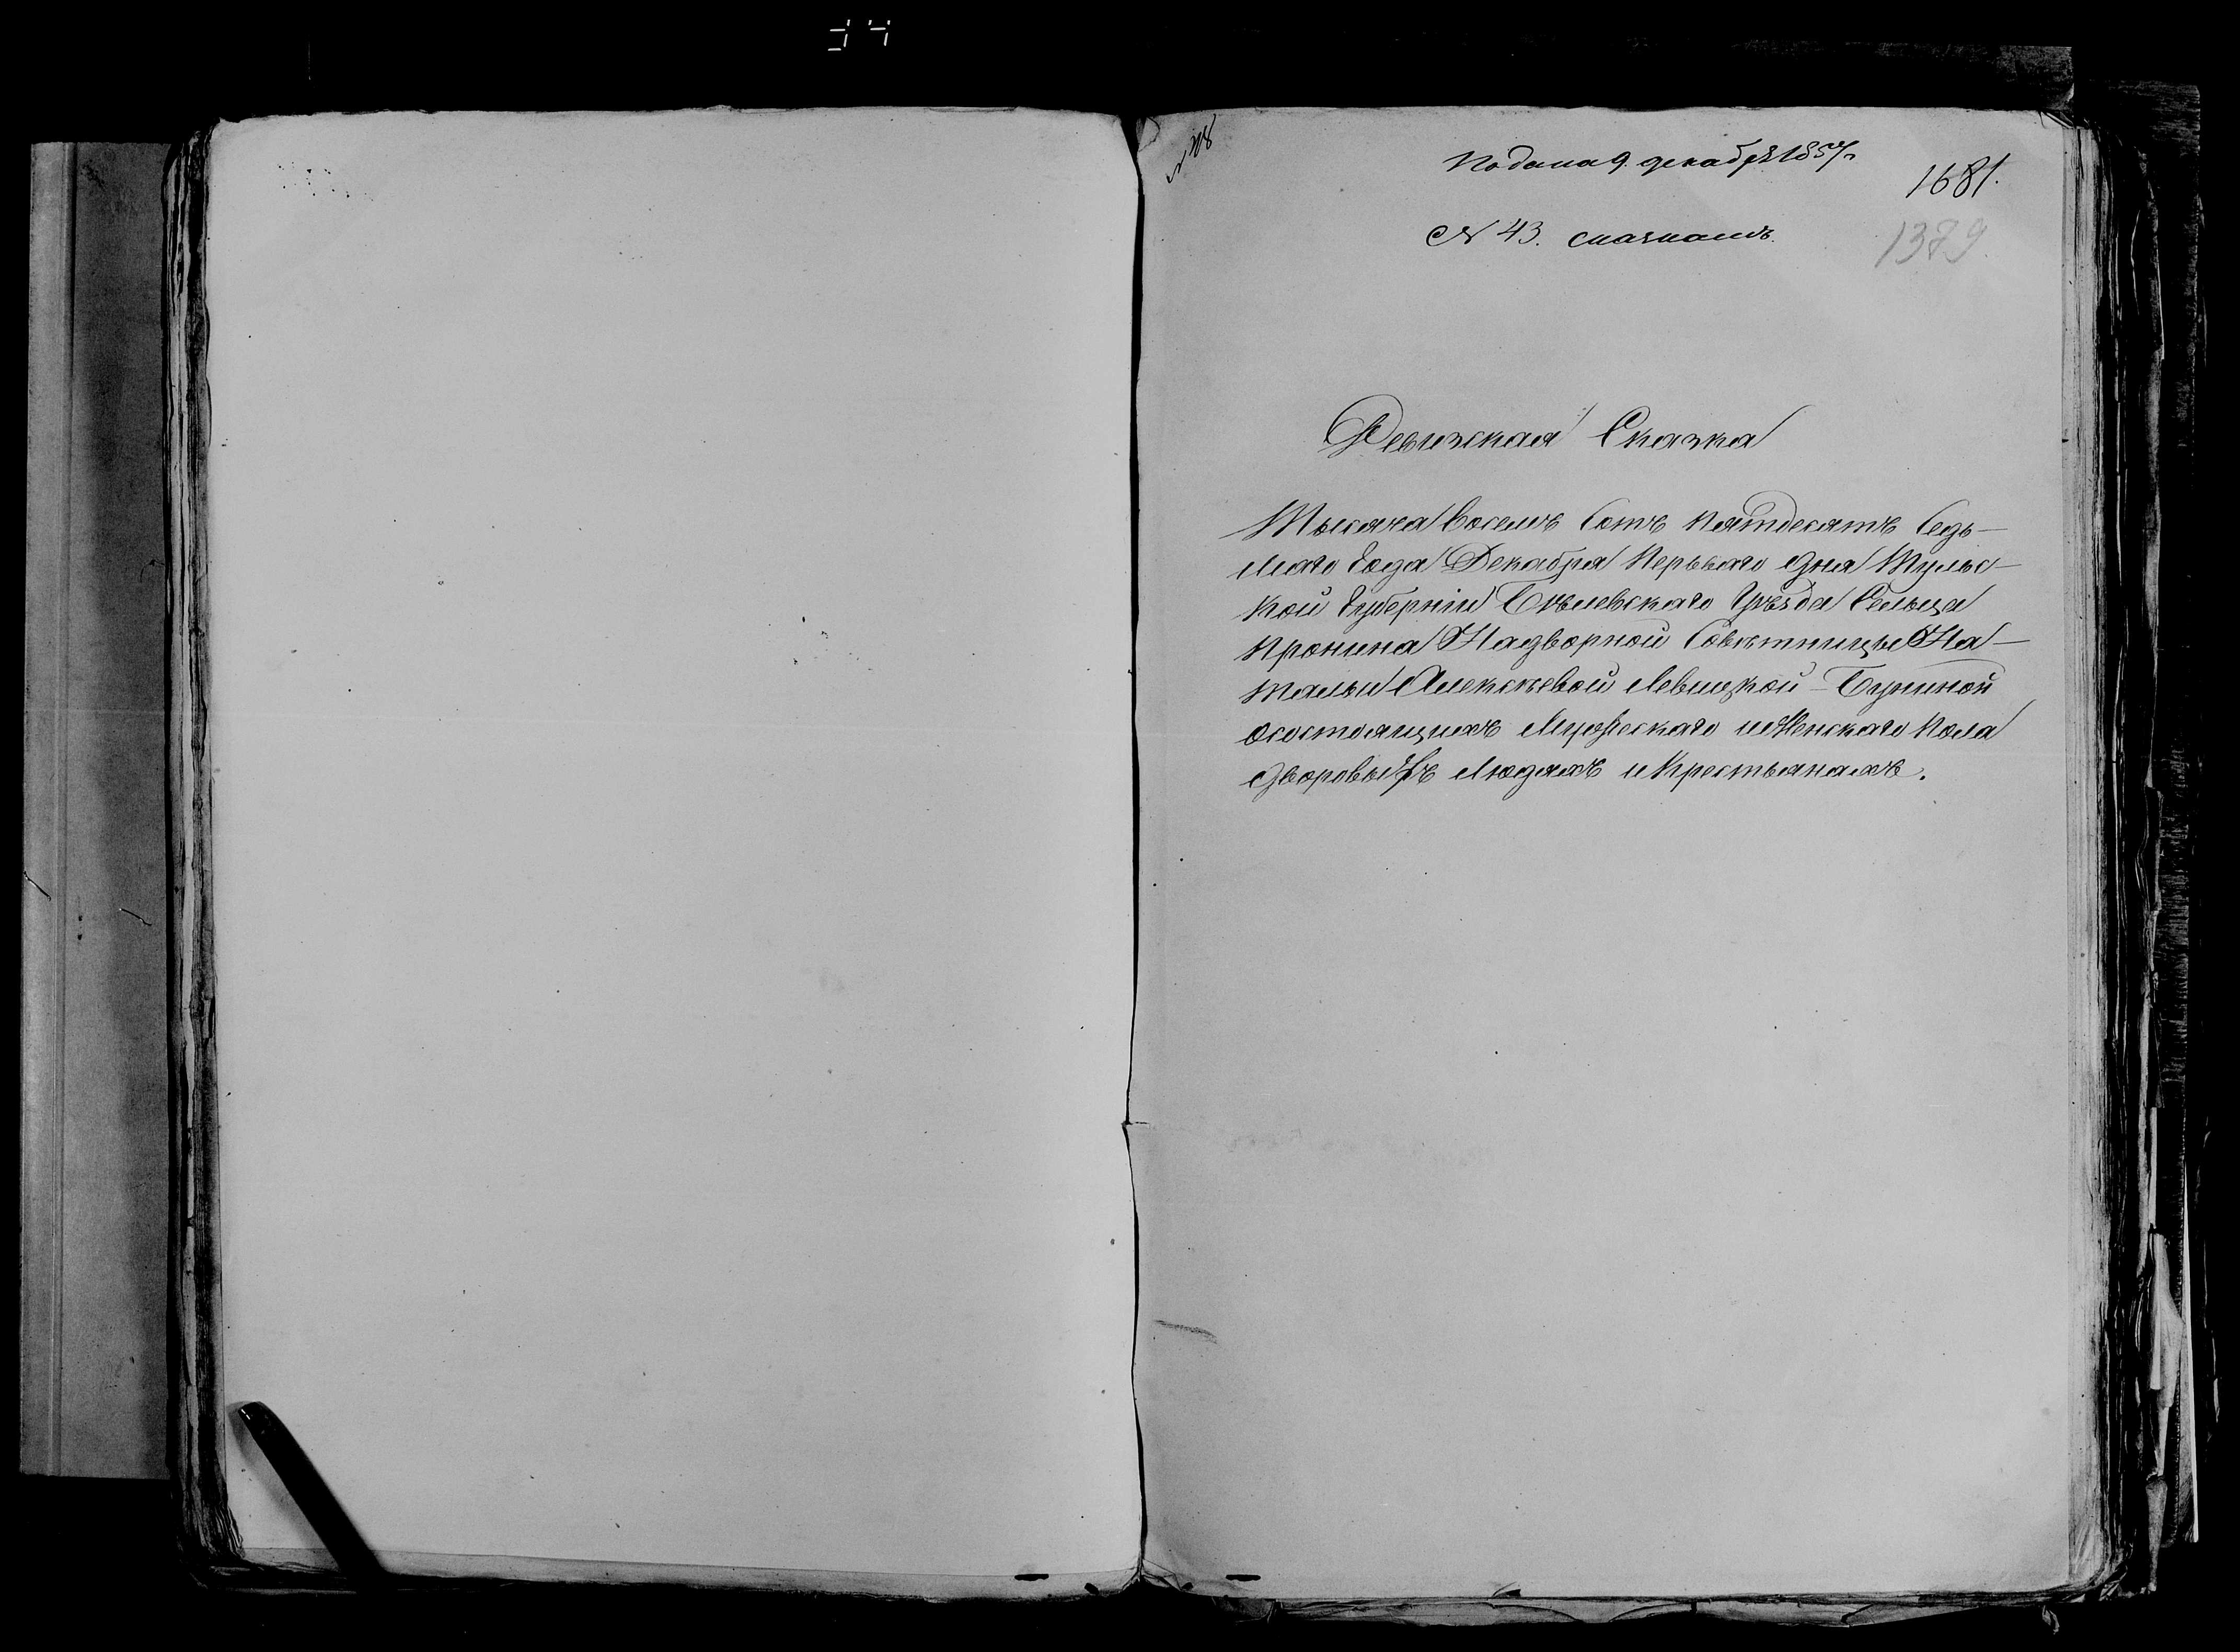 Подана 9. декабря 1857 г.
1681.
N 43. сказкамъ.
1379.
Ревизская Сказка
Тысяча Восемь Сотъ Пятдесятъ Седь-
маго Года Декабря Перьваго дня Тульс-
кой Губерніи Бѣлевскаго Уѣзда Сельца
Пронина Надворной Совѣтницы На-
тальи Алексѣевой Левицкой-Буниной
осостоящихъ Мужескаго иженскаго Пола
дворовыхъ Людяхъ иКрестьянахъ.